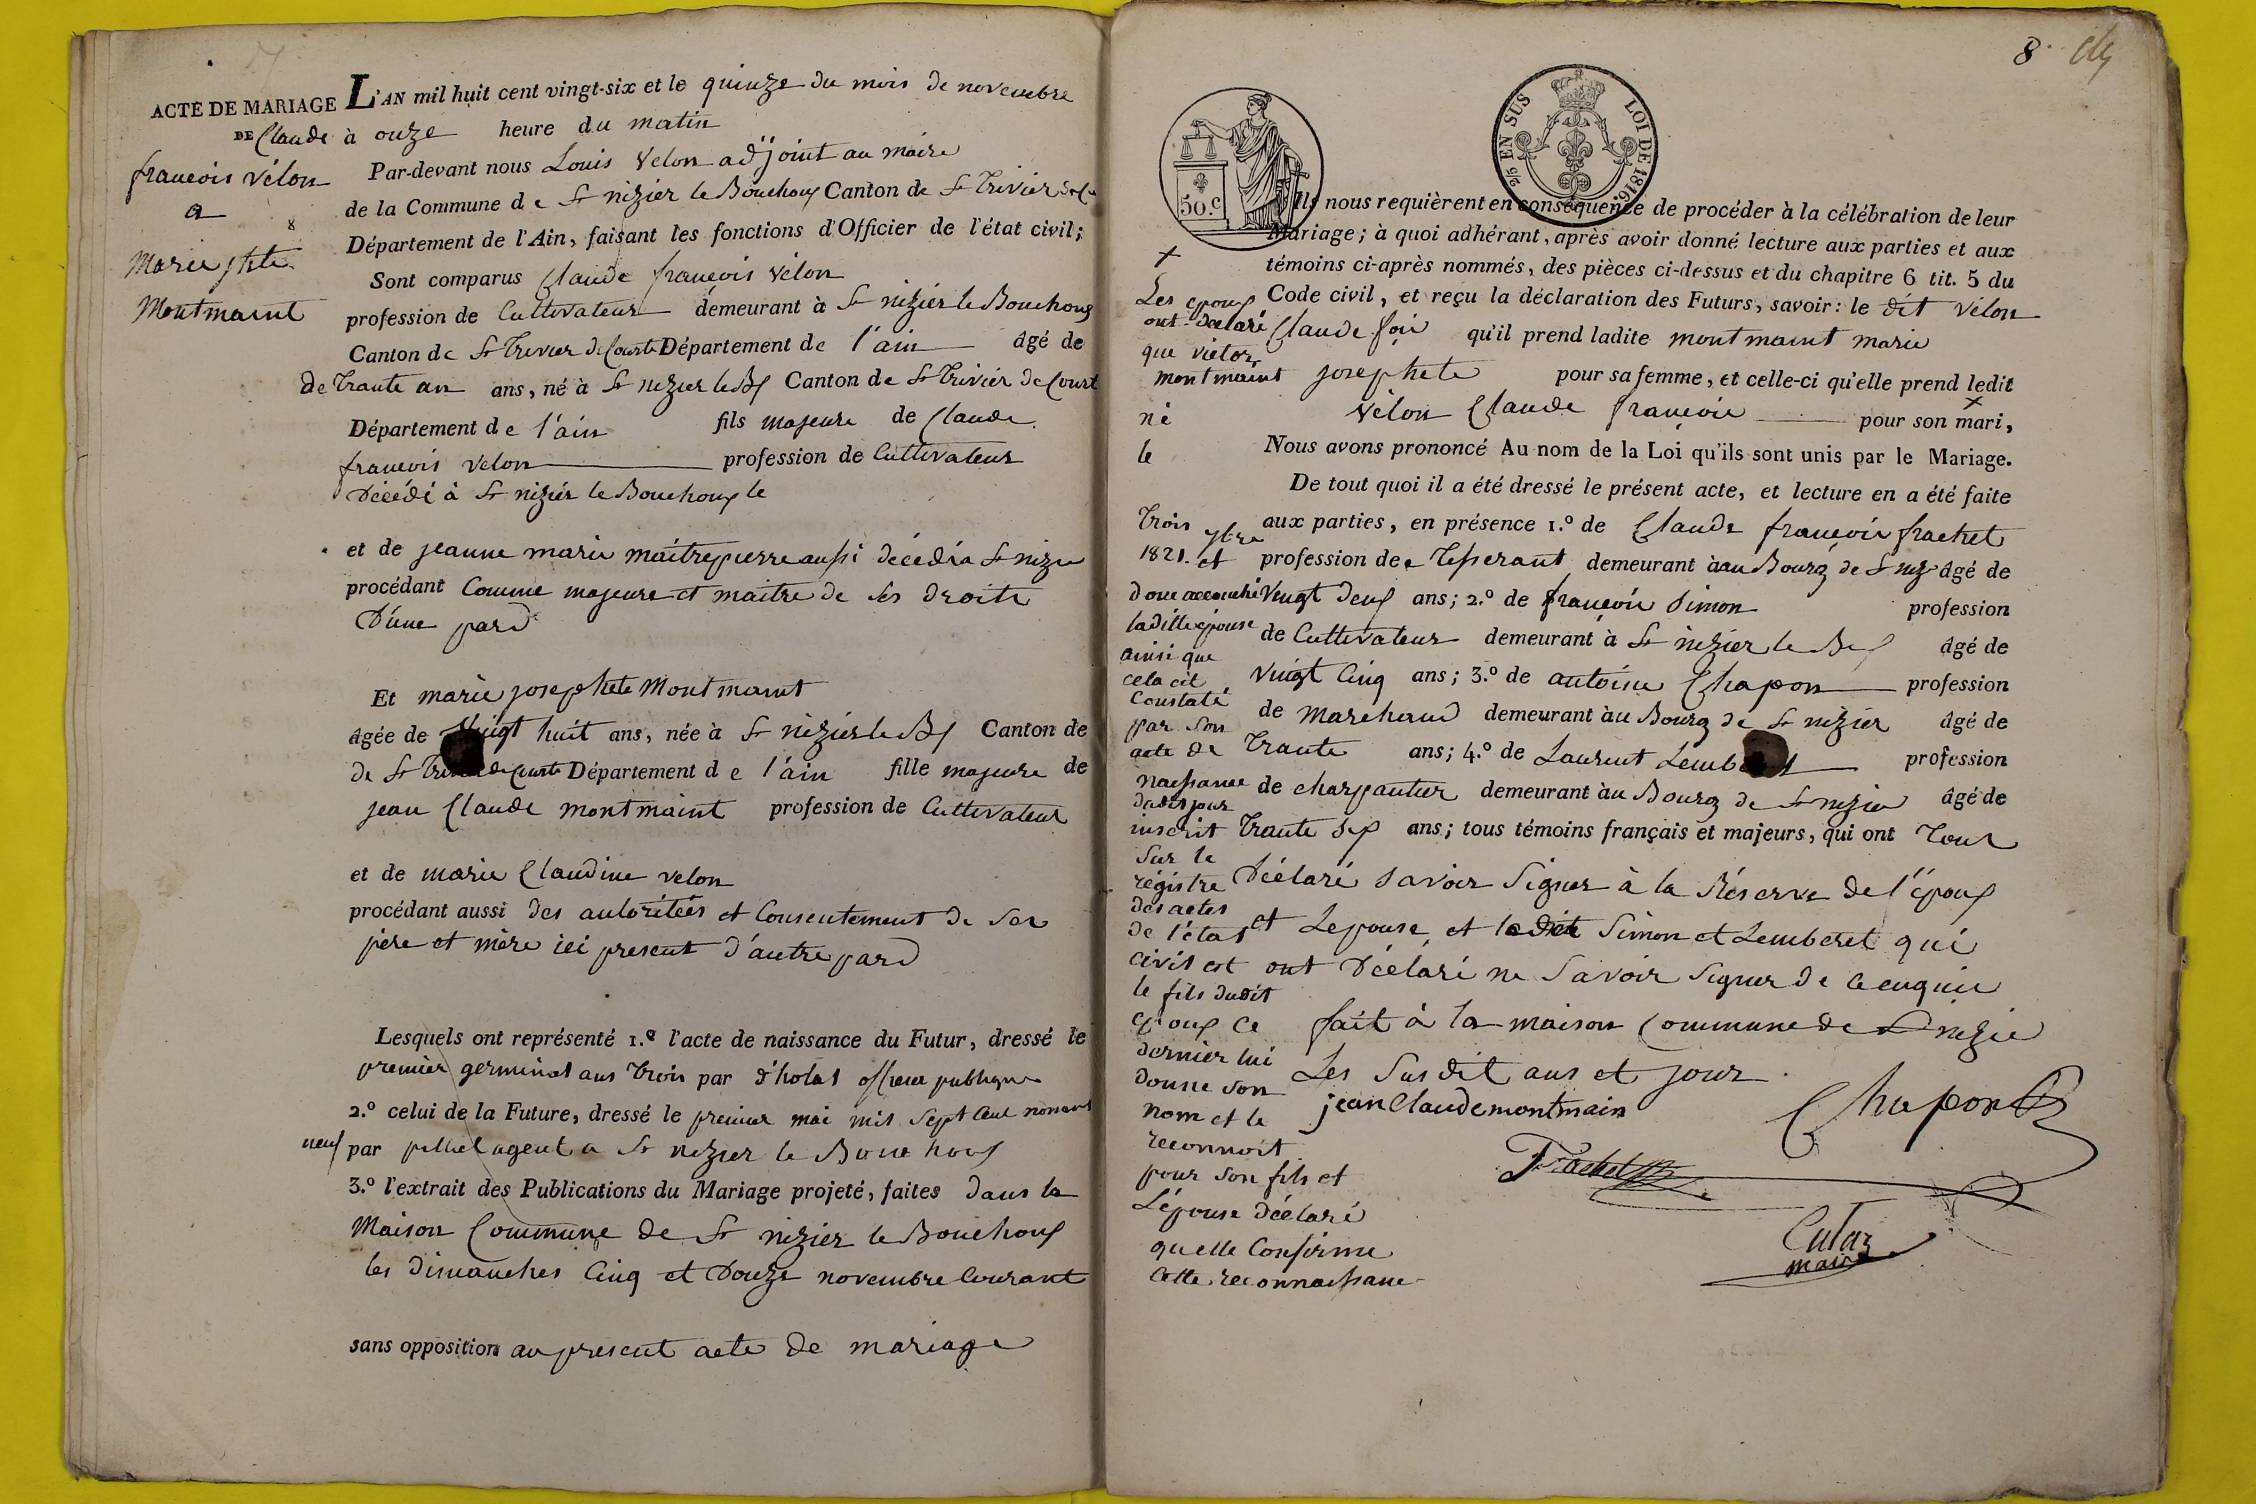 ACTE DE MARIAGE
DE Claude
francois vélon
a
Marie jphte
Montmaint
L'AN mil huit cent vingt-six et le quinze du mois de novembre
à onze heure du matin
Par-devant nous Louis Velon adjoint au maire
de la Commune de St nizier le Bouchoux Canton de St Trivier
Département de l'Ain, faisant les fonctions d'Officier de l'état civil;
Sont comparus Claude françois vélon
profession de Cultivateur demeurant à St nizier le Bouchoux
Canton de St Trivier de Courte Département de l'ain âgé de
de Trante an ans, né à St nizier le Bx Canton de St Trivier de Court
Département de l'ain fils majeure de Claude
francois velon profession de Cultivateur
Décédé à St nizier le Bouchoux le
et de jeanne marie maitrepierre aussi décédéa St nizie
procédant Comme majeure et maitre de ses droite
D'une pard
Et marie josephete Montmaint
âgée de Vingt huit ans, née à St nizier le Bx Canton de
de St Trivier de Courte Département de l'ain fille majeure de
jean Claude montmaint profession de Cultivateur
et de marie Claudine velon
procédant aussi des autoritées et Consentement de ses
père et mère ici present d'autre pard
Lesquels ont représenté 1.º l'acte de naissance du Futur, dressé le
premier germinal ans Trois par d'holat officier publique
2.º celui de la Future, dressé le premier mai mil sept Cent nonant
neuf par pillet agent a St nizier le Bouchoux
3.º l'extrait des Publications du Mariage projeté, faites dans la
Maison Commune de St nizier le Bouchoux
les dimanches Cinq et Douze novembre Courant
sans opposition au present acte de mariage
8.
50.c
2/5 EN SUS LOI DE 1816
Ils nous requièrent en conséquence de procéder à la célébration de leur
Mariage; à quoi adhérant, après avoir donné lecture aux parties et aux
témoins ci-après nommés, des pièces ci-dessus et du chapitre 6 tit. 5 du
Code civil, et reçu la déclaration des Futurs, savoir: le dit vélon
Claude foie qu'il prend ladite montmaint marie
josephete pour sa femme, et celle-ci qu'elle prend ledit
vélon Claude françoie pour son mari,
Nous avons prononcé Au nom de la Loi qu'ils sont unis par le Mariage.
De tout quoi il a été dressé le présent acte, et lecture en a été faite
aux parties, en présence 1.º de Claude françoie frachet
profession de Tisserant demeurant àau Bourg de St niz âgé de
Vingt deux ans; 2.º de françoie Simon profession
de Cultivateur demeurant à St nizier le Bx âgé de
Vingt Cinq ans; 3.º de antoine Chapon profession
de Marchand demeurant àu Bourg de St nizier âgé de
Trante ans; 4.º de Laurent Lemberet profession
de charpantier demeurant àu Bourg de St nizie âgé de
Trante sep ans; tous témoins français et majeurs, qui ont Tous
Déclaré savoir Signer à la Réserve de l'époux
et Lepouse et le dit Simon et Lemberet qui
ont Déclaré ne Savoir Signer de ce enquie
fait à la maison Commune de St nizie
Les Susdit ans et jour
x
Les epoux
ont declaré
que victor
montmaint
né
le
Trois 9bre
1821. et
donc accouché
ladille épouse
ainsi que
cela cst
Constaté
par son
acte de
naissance
dudit jour
inscrit
sur le
régistre
des actes
de l'état
civil est
le fils dudit
epoux ce
dernier lui
donne son
nom et le
reconnoit
pour son fils et
L'épouse déclaré
quelle Confirme
Cette reconnaissane
jean Claude montmain
Chapon
Frachet
Cutaz
maire